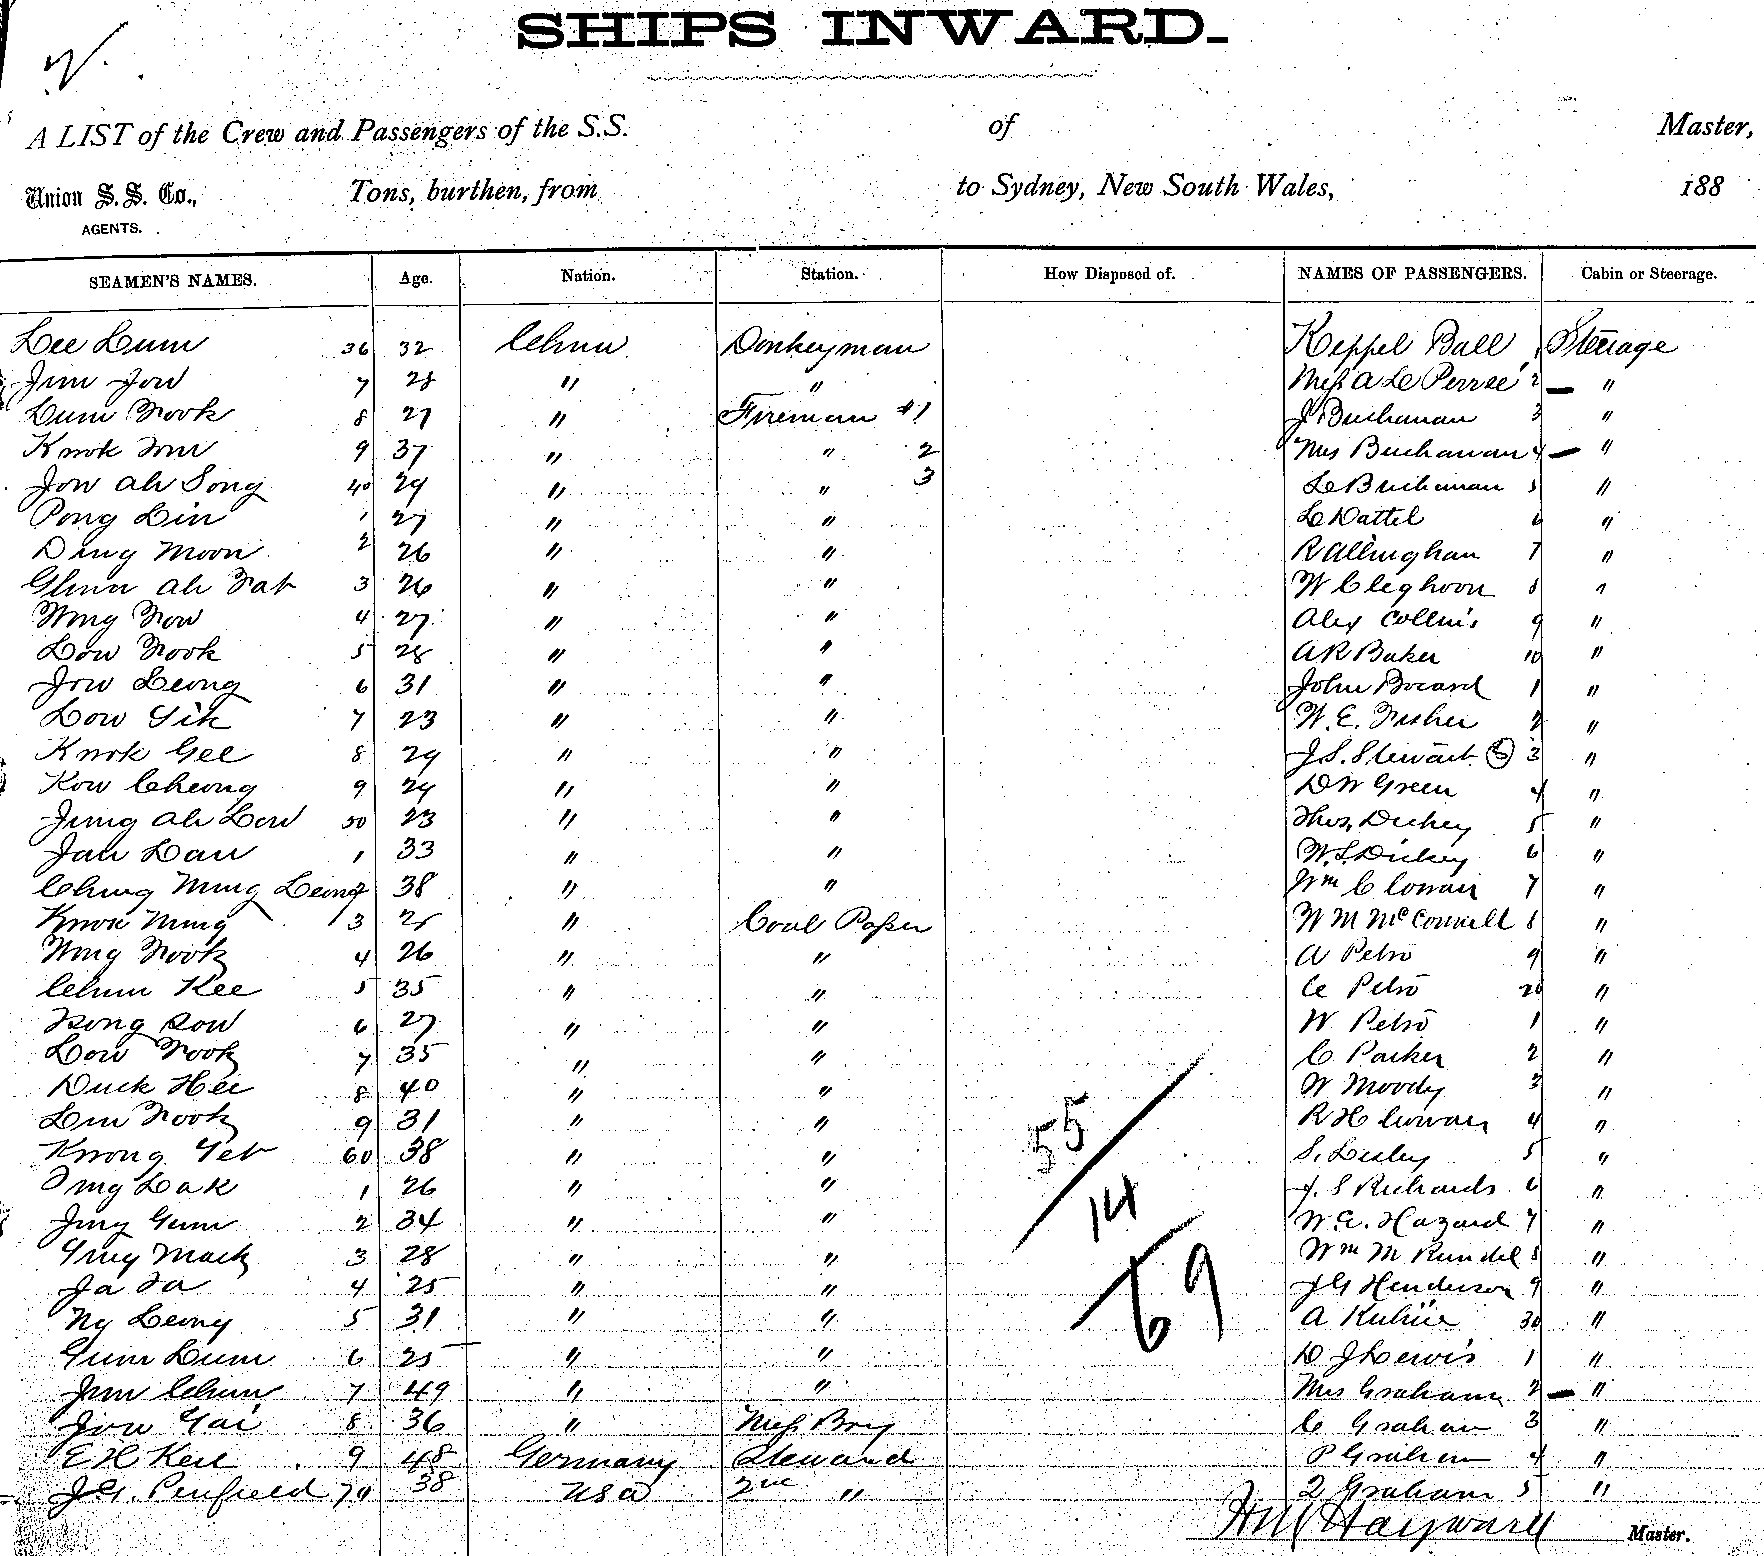 SHIPS INWARD.
A LIST of the Crew and Passengers of the S.S. of Master,
Union S. S. Co., Tons, burthen, from to Sydney, New South Wales, 188
AGENTS.
SEAMEN'S NAMES. Age. Nation. Station. How Disposed of. NAMES OF PASSENGERS. Cabin or Steerage.
Lee Lum 36 32 China Donkeyman Keppel Ball 1 Steerage
Jim Jow 7 28 " " Miss A Le Perrse 2 — "
Lum Fook 8 27 " Fireman #1 J Buchanan 3 "
Kwok 9 37 " " 2 Mrs Buchanan 4 — "
Jow Ah Song 40 29 " " 3 L Buchanan 5 "
Pong Lin 1 27 " " L Dattel 6 "
Ding Moon 2 26 " " R Allinghan 7 "
Ah Fat 3 26 " " W Cleghorn 8 "
Wong Fow 4 27 " " Alex Collins 9 "
Low Fook 5 28 " " A R Baker 10 "
Jow Leong 6 31 " " John Bocard 1 "
Low Yik 7 23 " " W. E. Fisher 2 "
Kwok Gee 8 29 " " J. S. Stewart 3 "
Kow Cheong 9 29 " " D W Green 4 "
Jung Ah Low 50 23 " " Thos. Dickey 5 "
Jan Lau 1 33 " " W. S. Dickey 6 "
Chung Ming Leong 2 38 " " Wm C Cowan 7 "
Kwok Ming 3 25 " Coal Passer W M McConnell 8 "
Wong Fook 4 26 " " A Petro 9 "
Chun Kee 5 35 " " C Petro 20 "
Tsong Sow 6 27 " " W. Petro 1 "
Low Fook 7 35 " " C Parker 2 "
Duck Hee 8 40 " " W Moody 3 "
Lim Fook 9 31 " " R H Cowan 4 "
Kwong Yet 60 38 " " S. Lesley 5 "
Lak 1 26 " " J. S Richards 6 "
Jung Gum 2 34 " " W. A. Hazard 7 "
Mack 3 28 " " Wm M Rundel 8 "
Ja 4 25 " " J G Henderson 9 "
Ng Leong 5 31 " " A 30 "
Gum Lum 6 25 " " D J Lewis 1 "
Jim Chun 7 49 " " Mrs Graham 2 — "
Jow Yai 8 36 " Mess Boy C Graham 3 "
E H Keil 9 48 Germany Steward P Graham 4 "
J. G. Penfield 70 38 USA 2nd " Graham 5 "
55
14
69
Hayward Master.